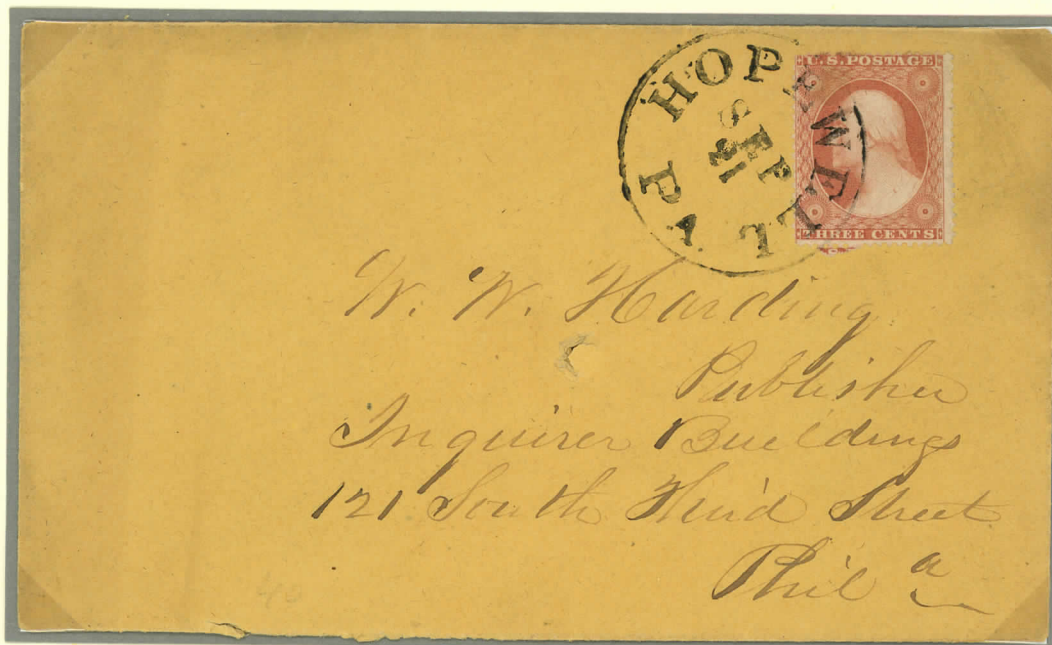 HOPEWELL PA
SEP
21
U.S. POSTAGE
THREE CENTS
W. W. Harding
Publisher
Inquirer Buildings
121 South Third Street
Phil a
40